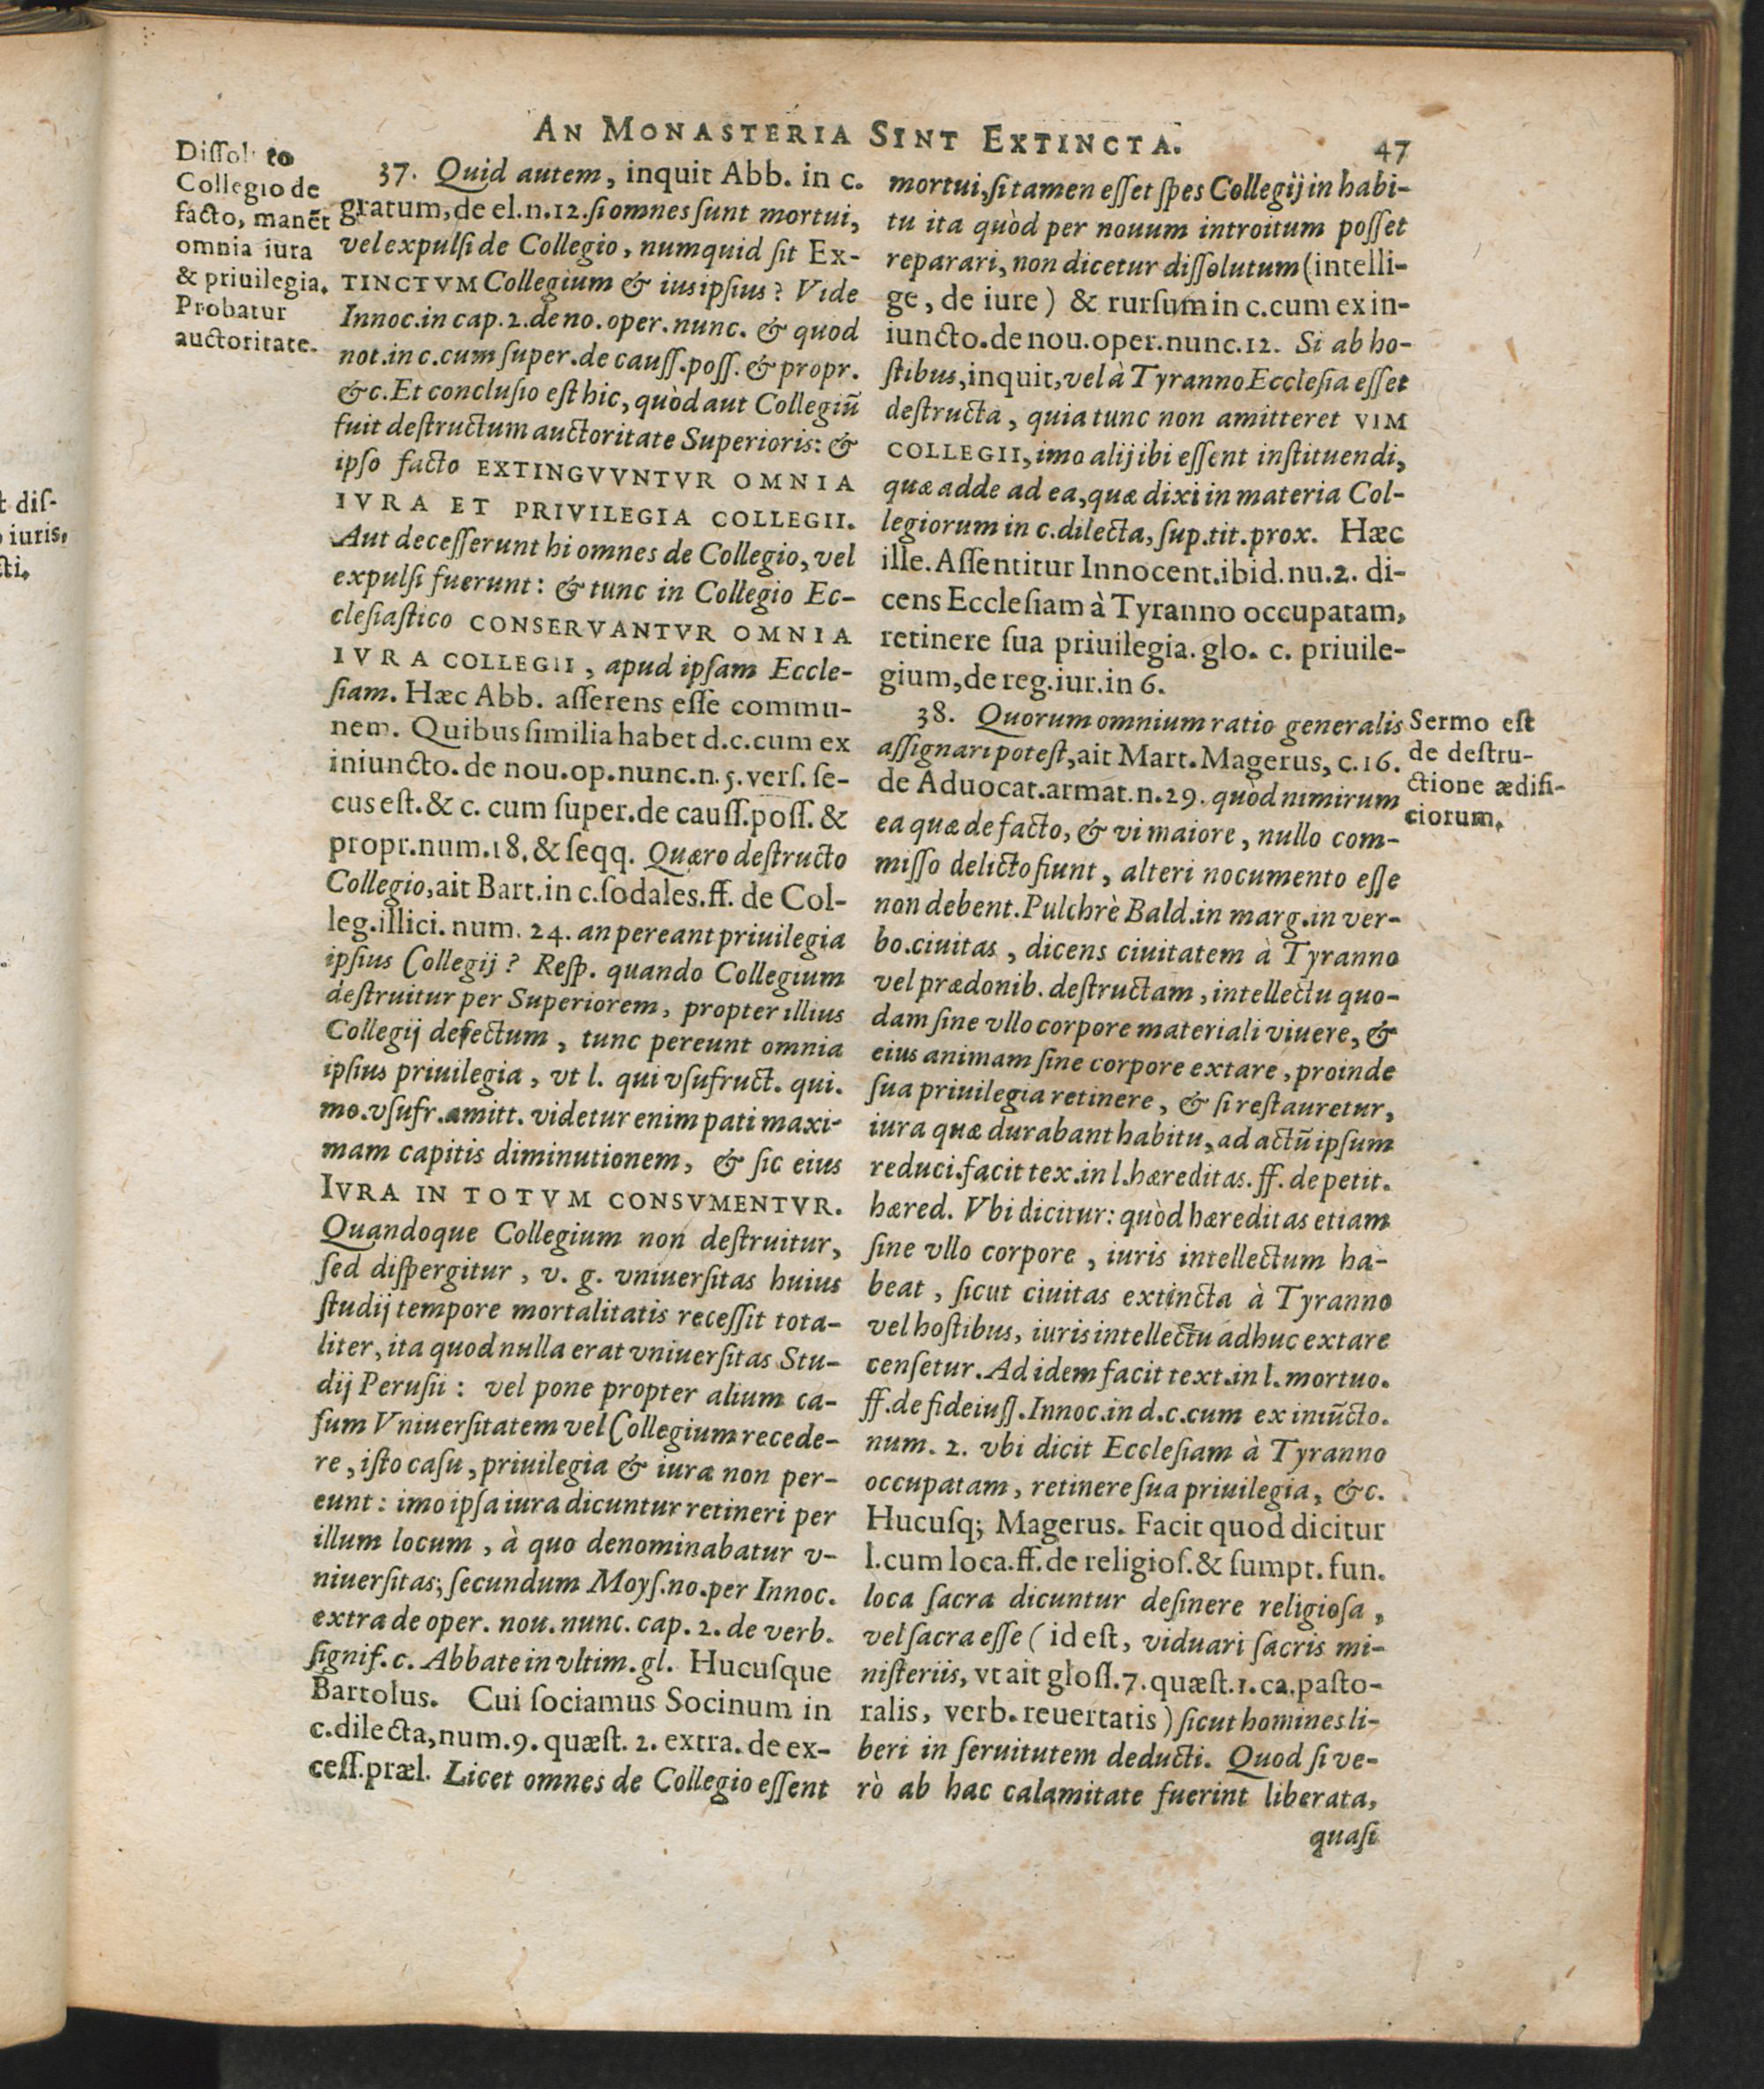 AN MONASTERIA SINT EXTINCTA.
47
to
Collegio de
facto, manēt
omnia iura
& priuilegia.
Probatur
auctoritate.
37. Quid autem, inquit Abb. in c.
gratum, de el. n. 12. si omnes sunt mortui,
vel expulsi de Collegio, numquid sit Ex-
TINCTVM Collegium & ius ipsius? Vide
Innoc. in cap. 2. de no. oper. nunc. & quod
not. in c. cum super. de causs. poss. & propr.
&c. Et conclusio est hic, quòd aut Collegiū
fuit destructum auctoritate Superioris: &
ipso facto EXTINGVVNTVR OMNIA
IVRA ET PRIVILEGIA COLLEGII.
Aut decesserunt hi omnes de Collegio, vel
expulsi fuerunt: & tunc in Collegio Ec-
clesiastico CONSERVANTVR OMNIA
IVRA COLLEGII, apud ipsam Eccle-
siam. Hæc Abb. asserens esse commu-
nem. Quibus similia habet d. c. cum ex
iniuncto. de nou. op. nunc. n. 5. vers. se-
cus est. & c. cum super. de causs. poss. &
propr. num. 18. & seqq. Quæro destructo
Collegio, ait Bart. in c. sodales. ff. de Col-
leg. illici. num. 24. an pereant priuilegia
ipsius Collegij? Resp. quando Collegium
destruitur per Superiorem, propter illius
Collegij defectum, tunc pereunt omnia
ipsius priuilegia, vt l. qui vsufruct. qui.
mo. vsufr. amitt. videtur enim pati maxi-
mam capitis diminutionem, & sic eius
IVRA IN TOTVM CONSVMENTVR.
Quandoque Collegium non destruitur,
sed dispergitur, v. g. vniuersitas huius
studij tempore mortalitatis recessit tota-
liter, ita quod nulla erat vniuersitas Stu-
dij Perusii: vel pone propter alium ca-
sum Vniuersitatem vel Collegium recede-
re, isto casu, priuilegia & iura non per-
eunt: imo ipsa iura dicuntur retineri per
illum locum, à quo denominabatur v-
niuersitas; secundum Moys. no. per Innoc.
extra de oper. nou. nunc. cap. 2. de verb.
signif. c. Abbate in vltim. gl. Hucusque
Bartolus. Cui sociamus Socinum in
c. dilecta, num. 9. quæst. 2. extra. de ex-
cess. præl. Licet omnes de Collegio essent
mortui, si tamen esset spes Collegij in habi-
tu ita quòd per nouum introitum posset
reparari, non dicetur dissolutum (intelli-
ge, de iure) & rursum in c. cum ex in-
iuncto. de nou. oper. nunc. 12. Si ab ho-
stibus, inquit, vel à Tyranno Ecclesia esset
destructa, quia tunc non amitteret VIM
COLLEGII, imo alij ibi essent instituendi,
quæ adde ad ea, quæ dixi in materia Col-
legiorum in c. dilecta, sup. tit. prox. Hæc
ille. Assentitur Innocent. ibid. nu. 2. di-
cens Ecclesiam à Tyranno occupatam,
retinere sua priuilegia. glo. c. priuile-
gium, de reg. iur. in 6.
38. Quorum omnium ratio generalis
assignari potest, ait Mart. Magerus, c. 16.
de Aduocat. armat. n. 29. quòd nimirum
ea quæ de facto, & vi maiore, nullo com-
misso delicto fiunt, alteri nocumento esse
non debent. Pulchrè Bald. in marg. in ver-
bo. ciuitas, dicens ciuitatem à Tyranno
vel prædonib. destructam, intellectu quo-
dam sine vllo corpore materiali viuere, &
eius animam sine corpore extare, proinde
sua priuilegia retinere, & si restauretur,
iura quæ durabant habitu, ad actū ipsum
reduci. facit tex. in l. hæreditas. ff. de petit.
hæred. Vbi dicitur: quòd hæreditas etiam
sine vllo corpore, iuris intellectum ha-
beat, sicut ciuitas extincta à Tyranno
vel hostibus, iuris intellectu adhuc extare
censetur. Ad idem facit text. in l. mortuo.
ff. de fideiuss. Innoc. in d. c. cum ex iniūcto.
num. 2. vbi dicit Ecclesiam à Tyranno
occupatam, retinere sua priuilegia, &c.
Hucusq; Magerus. Facit quod dicitur
l. cum loca. ff. de religios. & sumpt. fun.
loca sacra dicuntur desinere religiosa,
vel sacra esse (id est, viduari sacris mi-
nisteriis, vt ait gloss. 7. quæst. 1. ca. pasto-
ralis, verb. reuertatis) sicut homines li-
beri in seruitutem deducti. Quod si ve-
rò ab hac calamitate fuerint liberata,
quasi
Sermo est
de destru-
ctione ædifi-
ciorum.
t dis-
iuris,
cti,